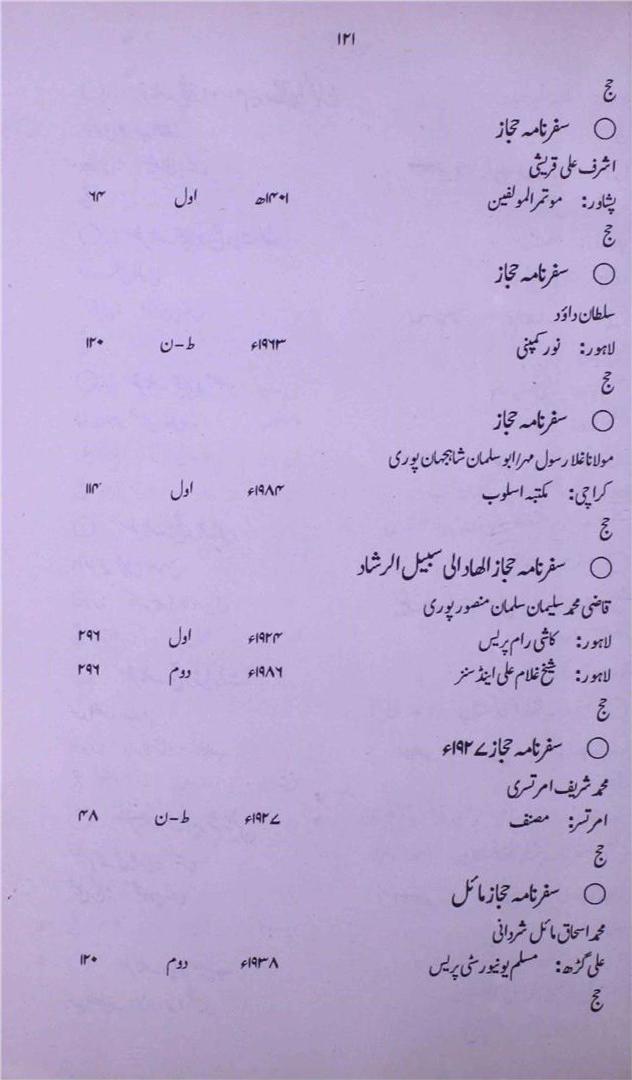 ۱۲۱
حج
○ سفرنامہ حجاز
اشرف علی قریشی
پشاور: موتمر المولفین ۱۴۰۱ھ اول ۶۴
حج
○ سفرنامہ حجاز
سلطان داؤد
لاہور: نور کمپنی ۱۹۶۳ء ط-ن ۱۲۰
حج
○ سفرنامہ حجاز
مولانا غلا رسول مہر ابو سلمان شاہجہان پوری
کراچی: مکتبہ اسلوب ۱۹۸۴ء اول ۱۱۴
حج
○ سفرنامہ حجاز الھاد الی سبیل الرشاد
قاضی محمد سلیمان سلمان منصور پوری
لاہور: کاشی رام پریس ۱۹۲۴ء اول ۲۹۶
لاہور: شیخ غلام علی اینڈ سنز ۱۹۸۶ء دوم ۲۹۶
حج
○ سفرنامہ حجاز ۱۹۲۷ء
محمد شریف امرتسری
امرتسر: مصنف ۱۹۲۷ء ط-ن ۴۸
حج
○ سفرنامہ حجاز مائل
محمد اسحاق مائل شردانی
علی گڑھ: مسلم یونیورسٹی پریس ۱۹۳۸ء دوم ۱۲۰
حج